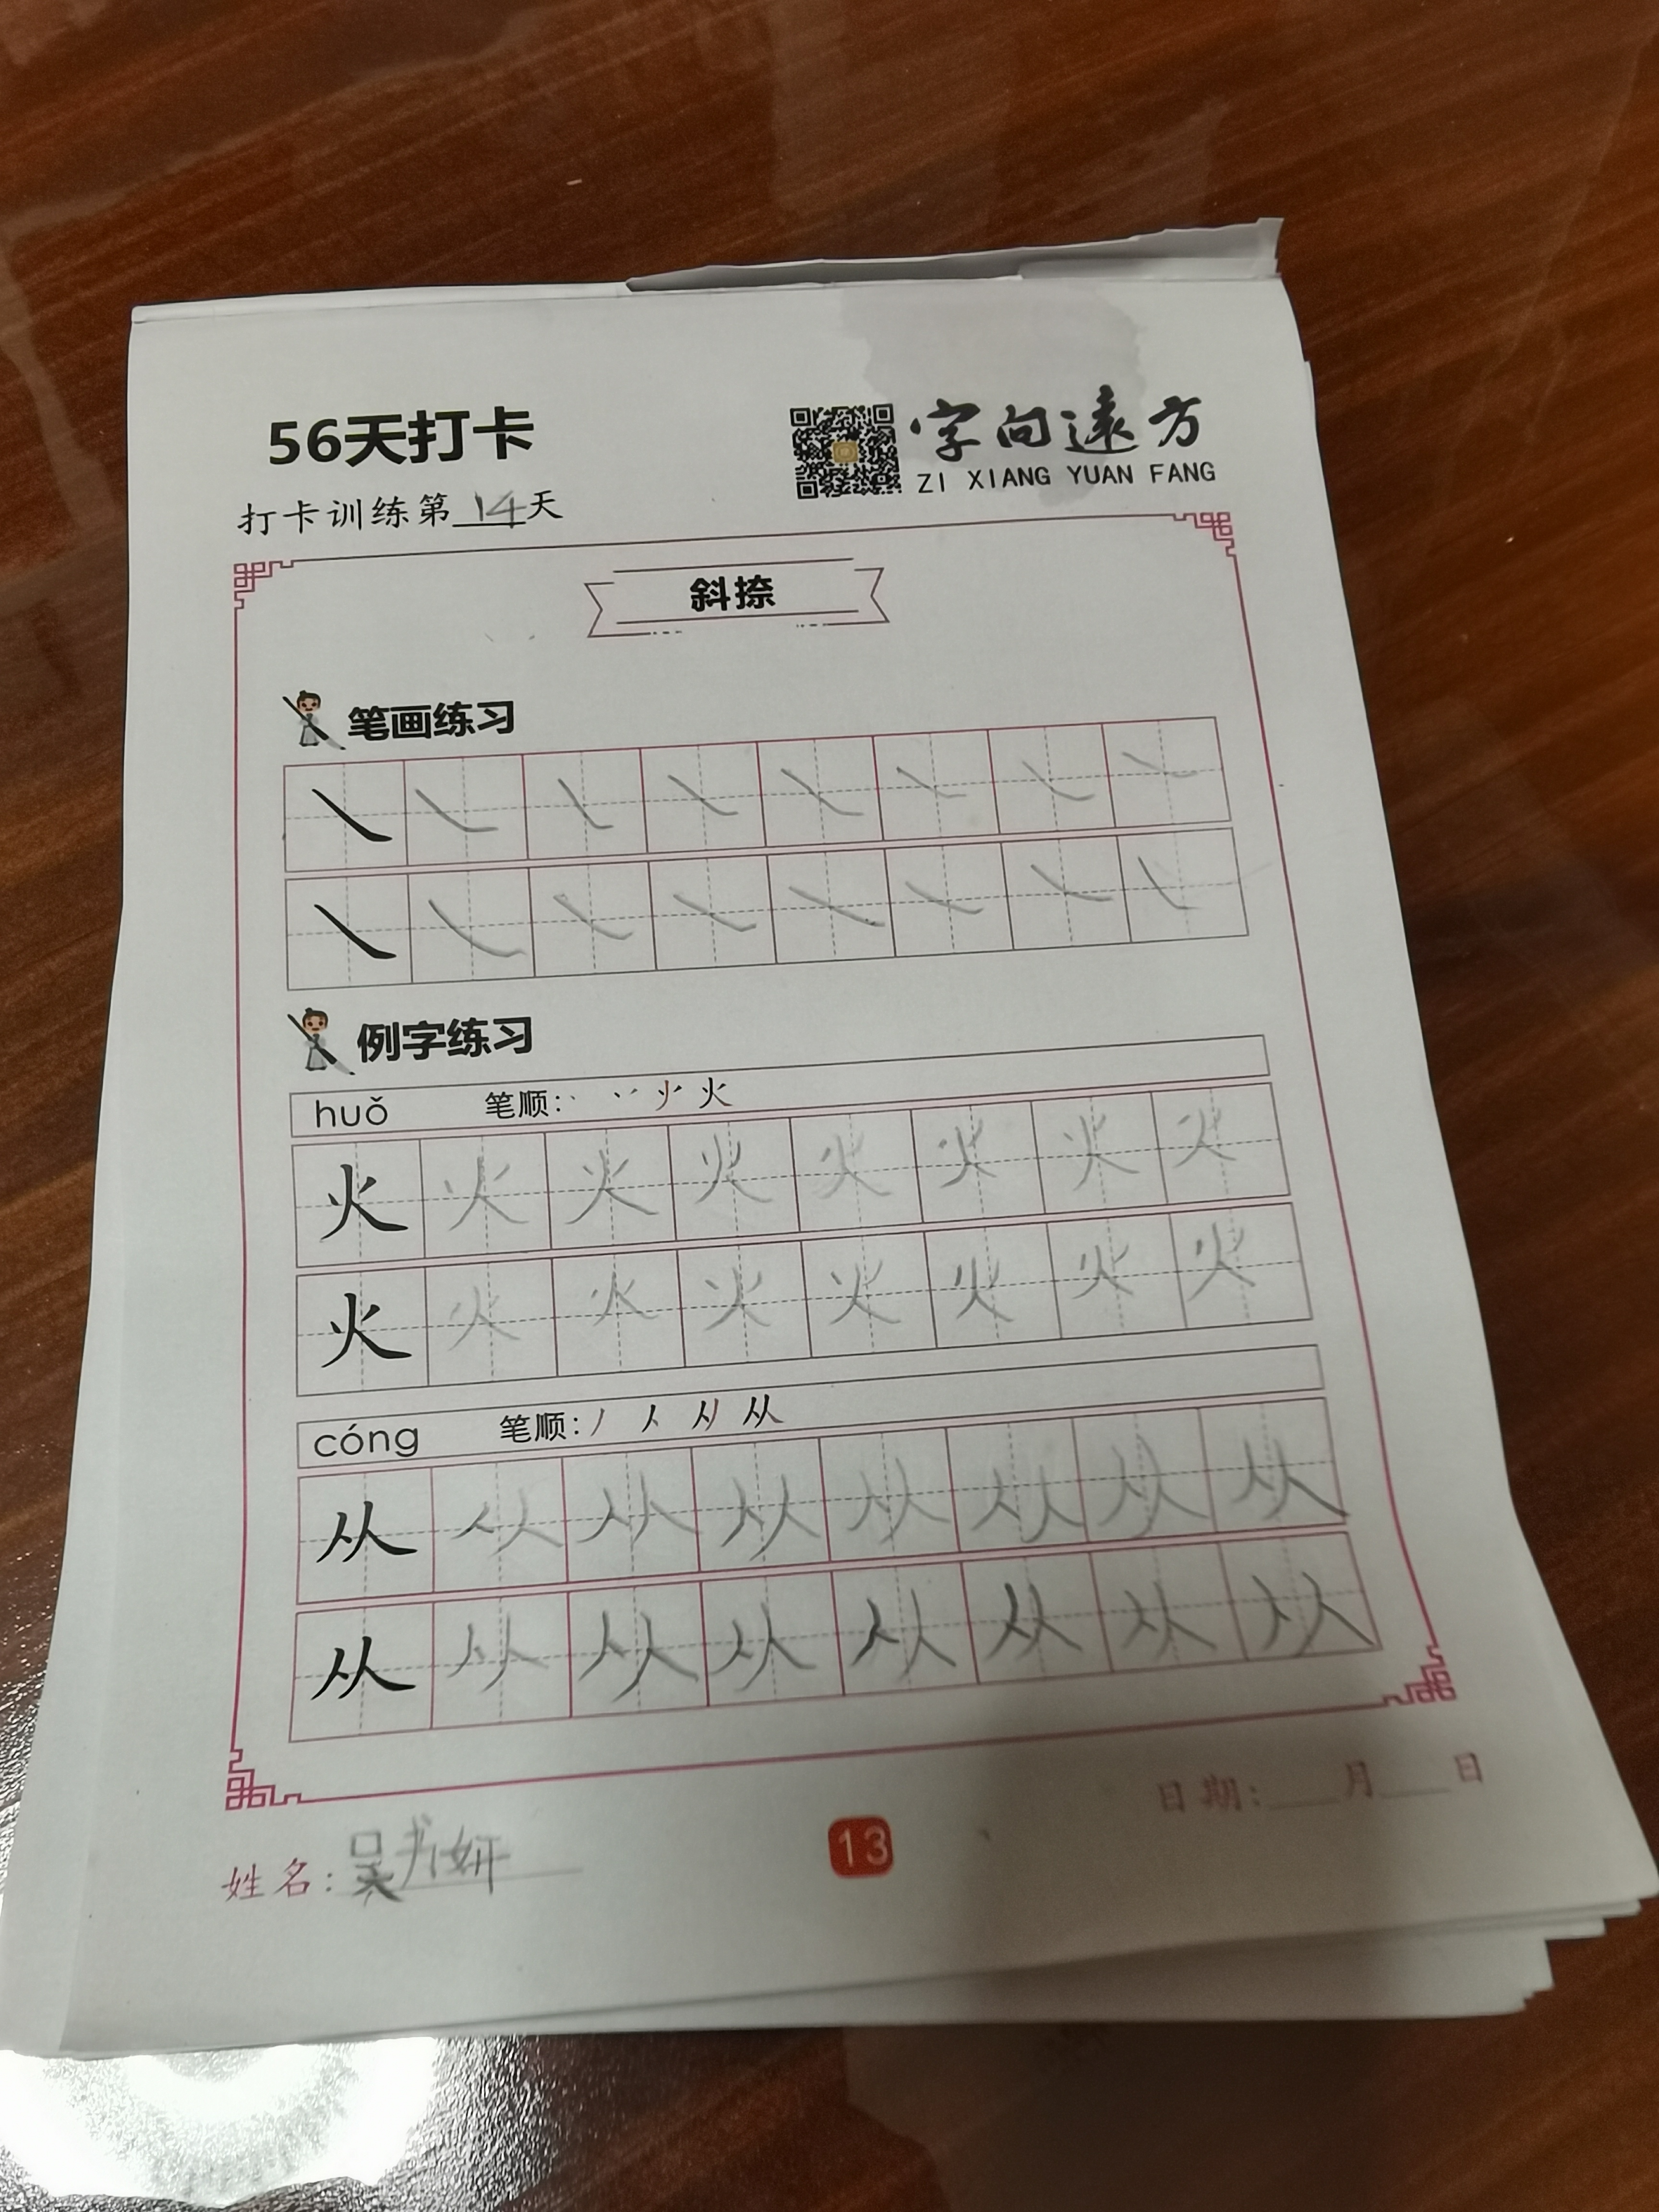 56天打卡
字向遠方
ZI XIANG YUAN FANG
打卡训练第14天
斜捺
笔画练习
㇏㇏㇏㇏㇏㇏㇏㇏
㇏㇏㇏㇏㇏㇏㇏㇏
例字练习
huǒ 笔顺: 火
火火火火火火火火
火火火火火火火火
cóng 笔顺: 丿 人 从
从从从从从从从从
从从从从从从从从
日期: 月 日
姓名: 吴书妍
13